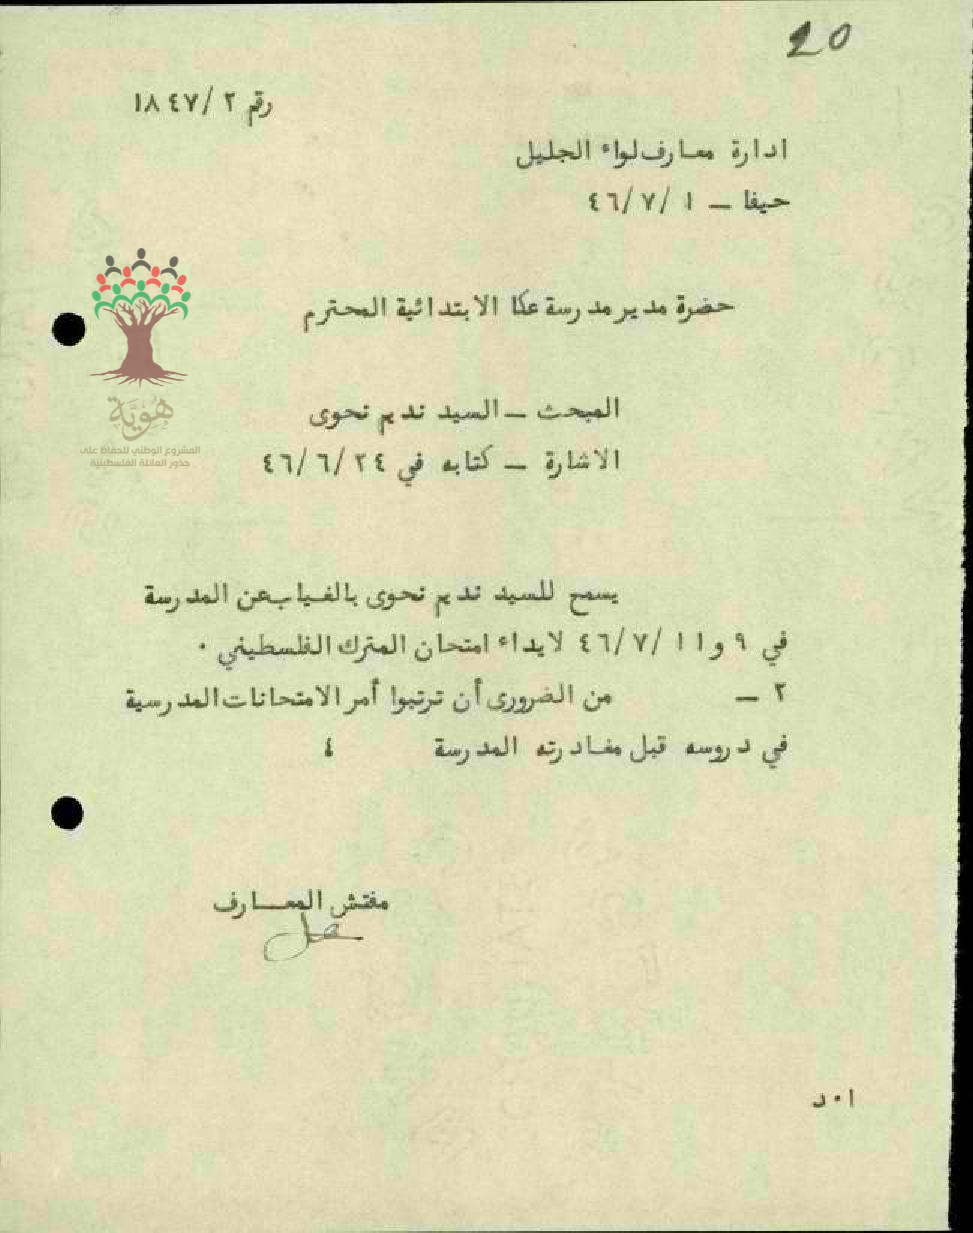 20
رقم ٢ /١٨٤٧
ادارة معارف لواء الجليل
حيفا ــ ١ /٧ /٤٦
حضرة مدير مدرسة عكا الابتدائية المحترم
المبحث ــ السيد نديم نحوى
الاشارة ــ كتابه في ٢٤ /٦ /٤٦
يسمح للسيد نديم نحوى بالغياب عن المدرسة
في ٩ و١١ /٧ /٤٦ لايداء امتحان المترك الفلسطيني ٠
٢ ــ من الضرورى أن ترتبوا أمر الامتحانات المدرسية
في دروسه قبل مغادرته المدرسة ٤
مفتش المعـــارف
ا ٠ د
هوية
المشروع الوطني للحفاظ على
جذور العائلة الفلسطينية